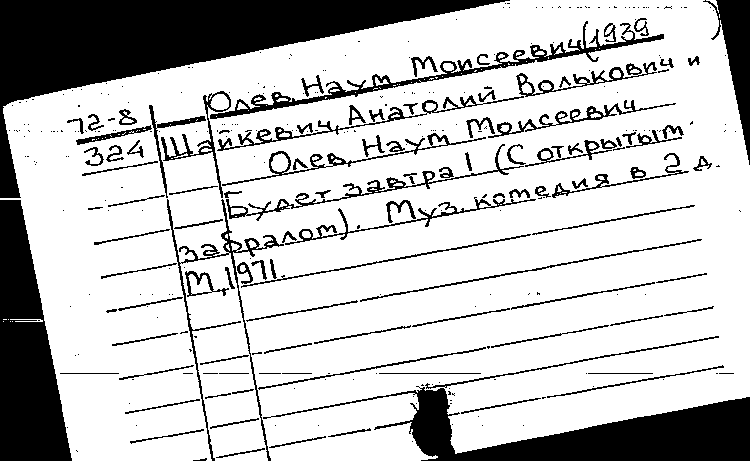 Олев, Наум Моисеевич (1939
72-8
324 Шайкевич, Анатолий Волькович и
Олев, Наум Моисеевич
Будет завтра! (С открытым
забралом). Муз. комедия в 2 д.
М., 1971.